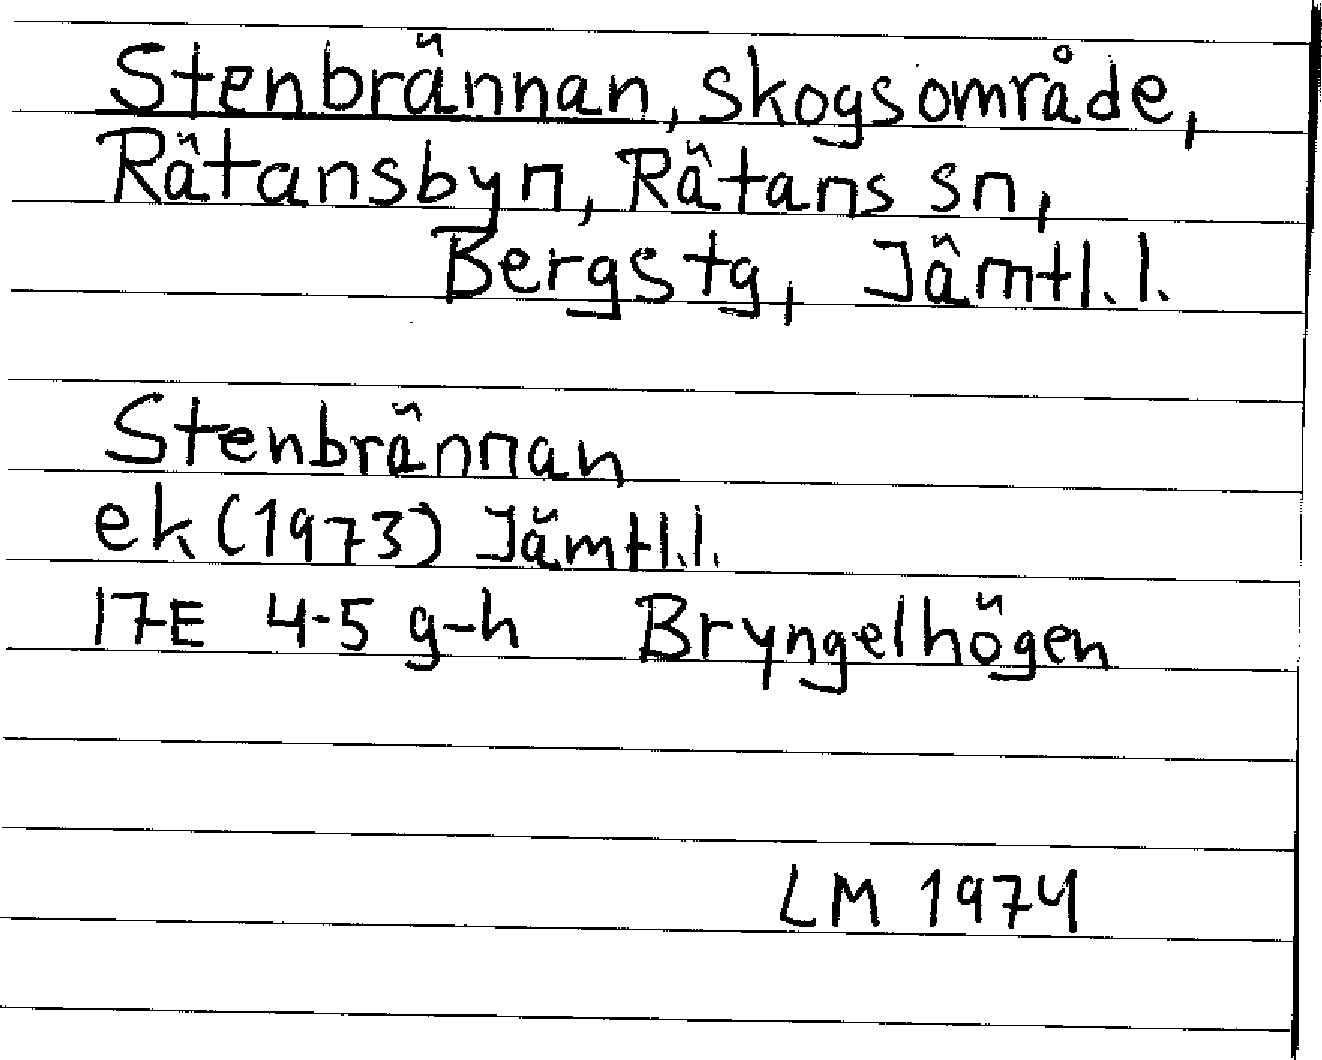 Stenbrännan, skogsområde,
Rätansbyn, Rätans sn,
Bergs tg, Jämtl. l.
Stenbrännan
ek (1973) Jämtl. l.
17E 4-5 g-h Bryngelhögen
LM 1974